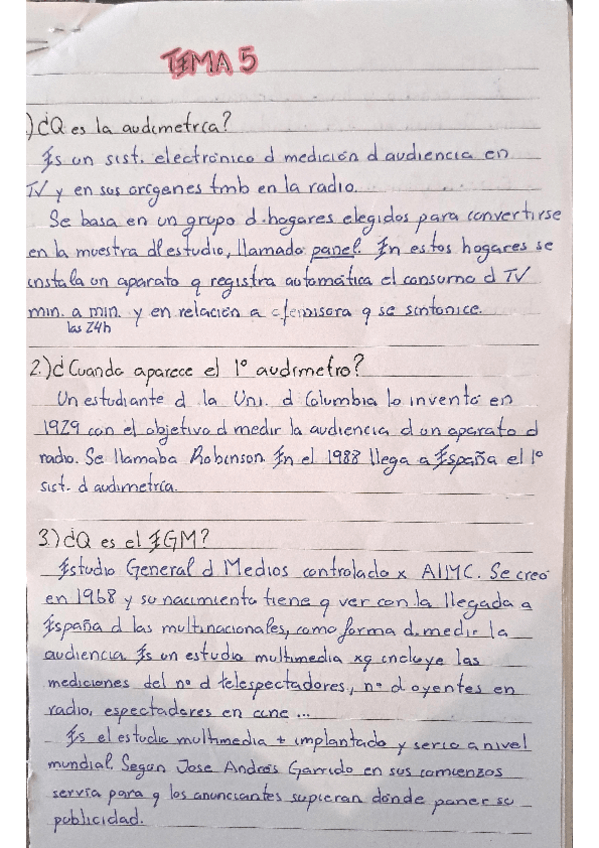 TEMA 5
) ¿Q es la audimetría?
Es un sist. electrónico d medición d audiencia en
TV y en sus orígenes tmb en la radio.
Se basa en un grupo d hogares elegidos para convertirse
en la muestra dl estudio, llamado panel. En estos hogares se
instala un aparato q registra automática el consumo d TV
min. a min. y en relación a emisora q se sintonice.
las 24h
2.) ¿Cuando aparece el 1º audímetro?
Un estudiante d la Uni. d Columbia lo inventó en
1929 con el objetivo d medir la audiencia d un aparato d
radio. Se llamaba Robinson. En el 1988 llega a España el 1º
sist. d audimetría.
3.) ¿Q es el EGM?
Estudio General d Medios controlado x AIMC. Se creó
en 1968 y su nacimiento tiene q ver con la llegada a
España d las multinacionales, como forma d medir la
audiencia. Es un estudio multimedia xq incluye las
mediciones del nº d telespectadores, nº d oyentes en
radio, espectadores en cine ...
Es el estudio multimedia + implantado y serio a nivel
mundial. Según Jose Andrés Garrido en sus comienzos
servía para q los anunciantes supieran dónde poner su
publicidad.